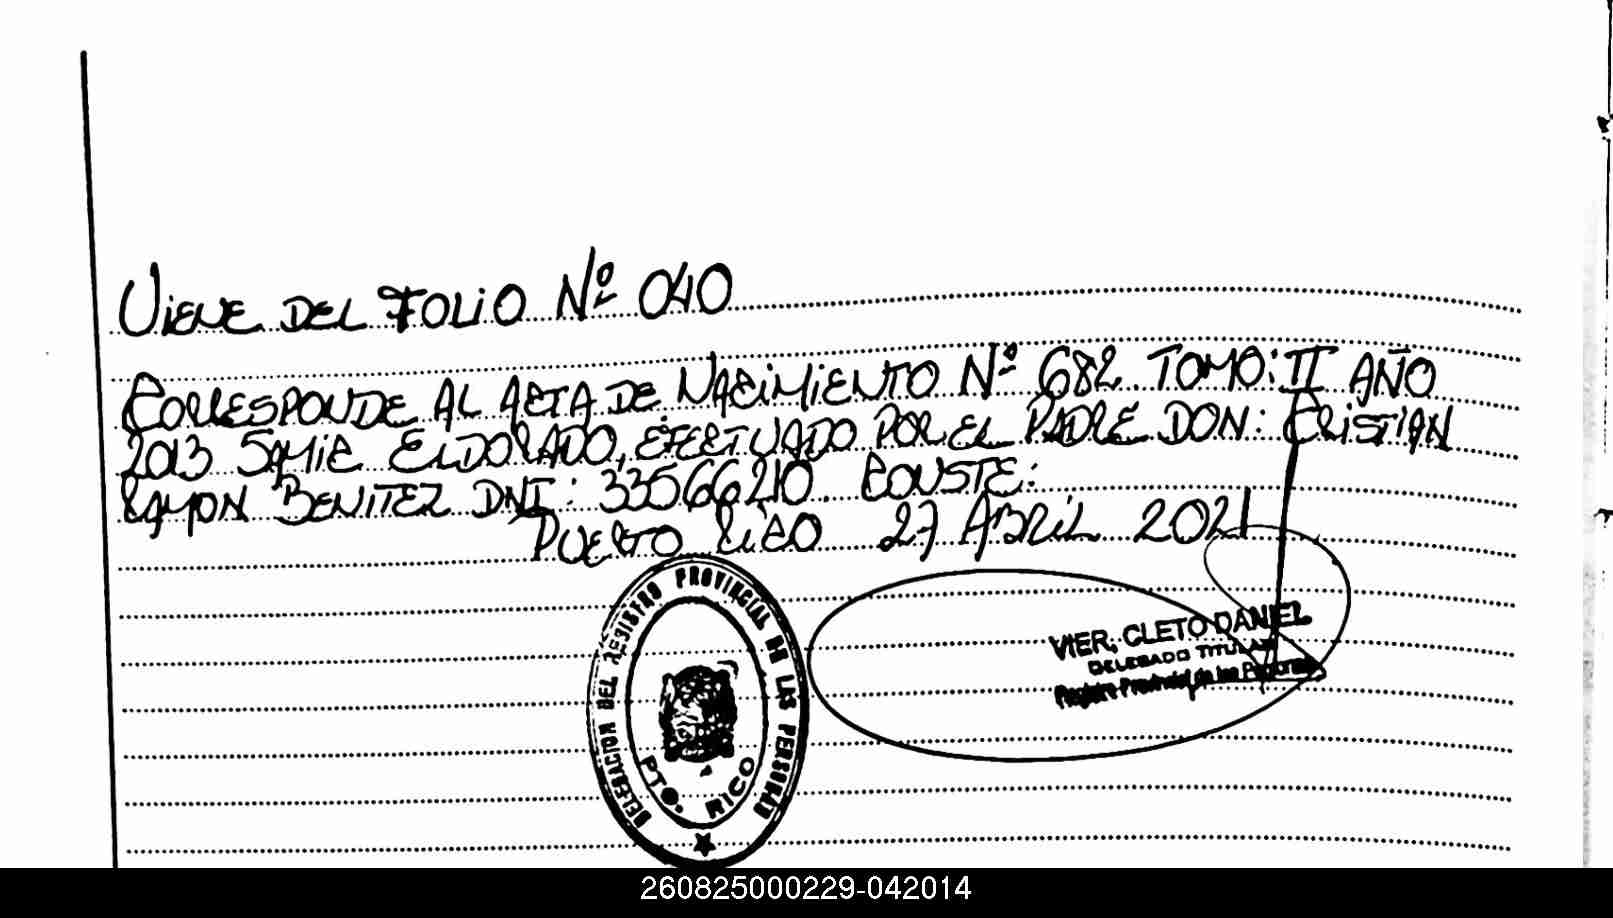 Viene del Folio Nº 040
Corresponde al Acta de Nacimiento Nº 682. Tomo: II Año
2013 Samic Eldorado, efectuado por el Padre Don: Cristian
Ramon Benitez DNI: 33566210. Conste:
Puerto Rico 27 Abril 2021
DELEGACION DEL REGISTRO PROVINCIAL DE LAS PERSONAS
PTO. RICO
VIER, CLETO DANIEL
DELEGADO TITULAR
Registro Provincial de las Personas
260825000229-042014